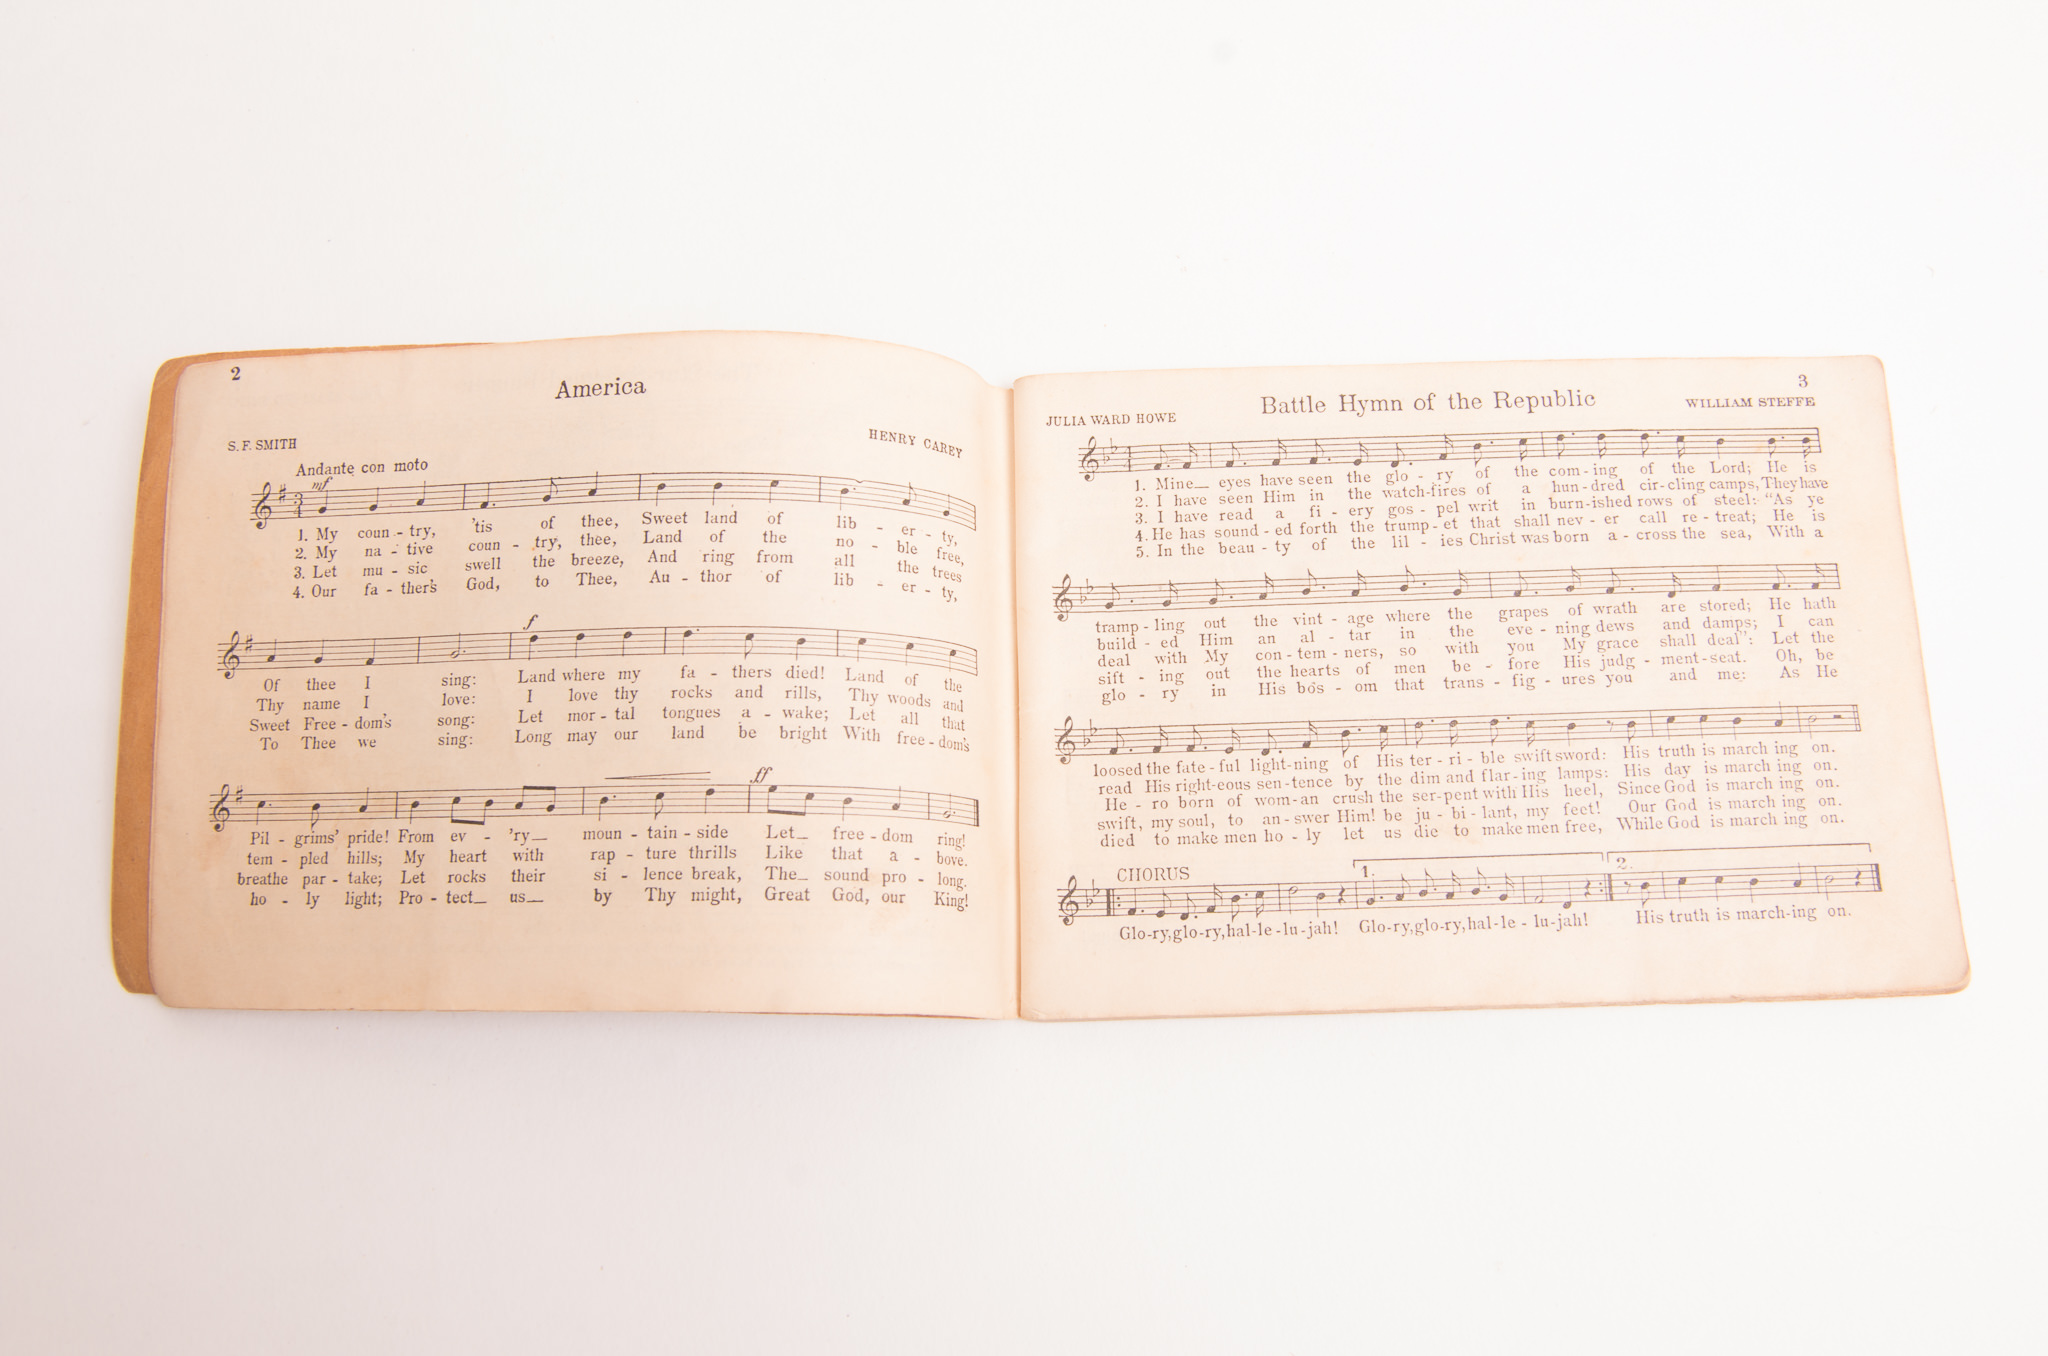 2
America
S. F. SMITH
HENRY CAREY
Andante con moto
mf
3
4
1. My coun - try, 'tis of thee, Sweet land of lib - er - ty,
2. My na - tive coun - try, thee, Land of the no - ble free,
3. Let mu - sic swell the breeze, And ring from all the trees
4. Our fa - ther's God, to Thee, Au - thor of lib - er - ty,
f
Of thee I sing: Land where my fa - thers died! Land of the
Thy name I love: I love thy rocks and rills, Thy woods and
Sweet Free - dom's song: Let mor - tal tongues a - wake; Let all that
To Thee we sing: Long may our land be bright With free - dom's
ff
Pil - grims' pride! From ev - 'ry_ moun - tain - side Let_ free - dom ring!
tem - pled hills; My heart with rap - ture thrills Like that a - bove.
breathe par - take; Let rocks their si - lence break, The_ sound pro - long.
ho - ly light; Pro - tect_ us_ by Thy might, Great God, our King!
3
Battle Hymn of the Republic
JULIA WARD HOWE
WILLIAM STEFFE
1. Mine_ eyes have seen the glo - ry of the com - ing of the Lord; He is
2. I have seen Him in the watch-fires of a hun - dred cir - cling camps, They have
3. I have read a fi - ery gos - pel writ in burn-ished rows of steel: "As ye
4. He has sound - ed forth the trump - et that shall nev - er call re - treat; He is
5. In the beau - ty of the lil - ies Christ was born a - cross the sea, With a
tramp - ling out the vint - age where the grapes of wrath are stored; He hath
build - ed Him an al - tar in the eve - ning dews and damps; I can
deal with My con - tem - ners, so with you My grace shall deal": Let the
sift - ing out the hearts of men be - fore His judg - ment-seat. Oh, be
glo - ry in His bos - om that trans - fig - ures you and me: As He
loosed the fate - ful light - ning of His ter - ri - ble swift sword: His truth is march ing on.
read His right-eous sen - tence by the dim and flar - ing lamps: His day is march ing on.
He - ro born of wom - an crush the ser-pent with His heel, Since God is march ing on.
swift, my soul, to an - swer Him! be ju - bi - lant, my feet! Our God is march ing on.
died to make men ho - ly let us die to make men free, While God is march ing on.
CHORUS
1.
2.
Glo-ry, glo-ry, hal-le-lu-jah! Glo-ry, glo-ry, hal-le - lu-jah! His truth is march-ing on.